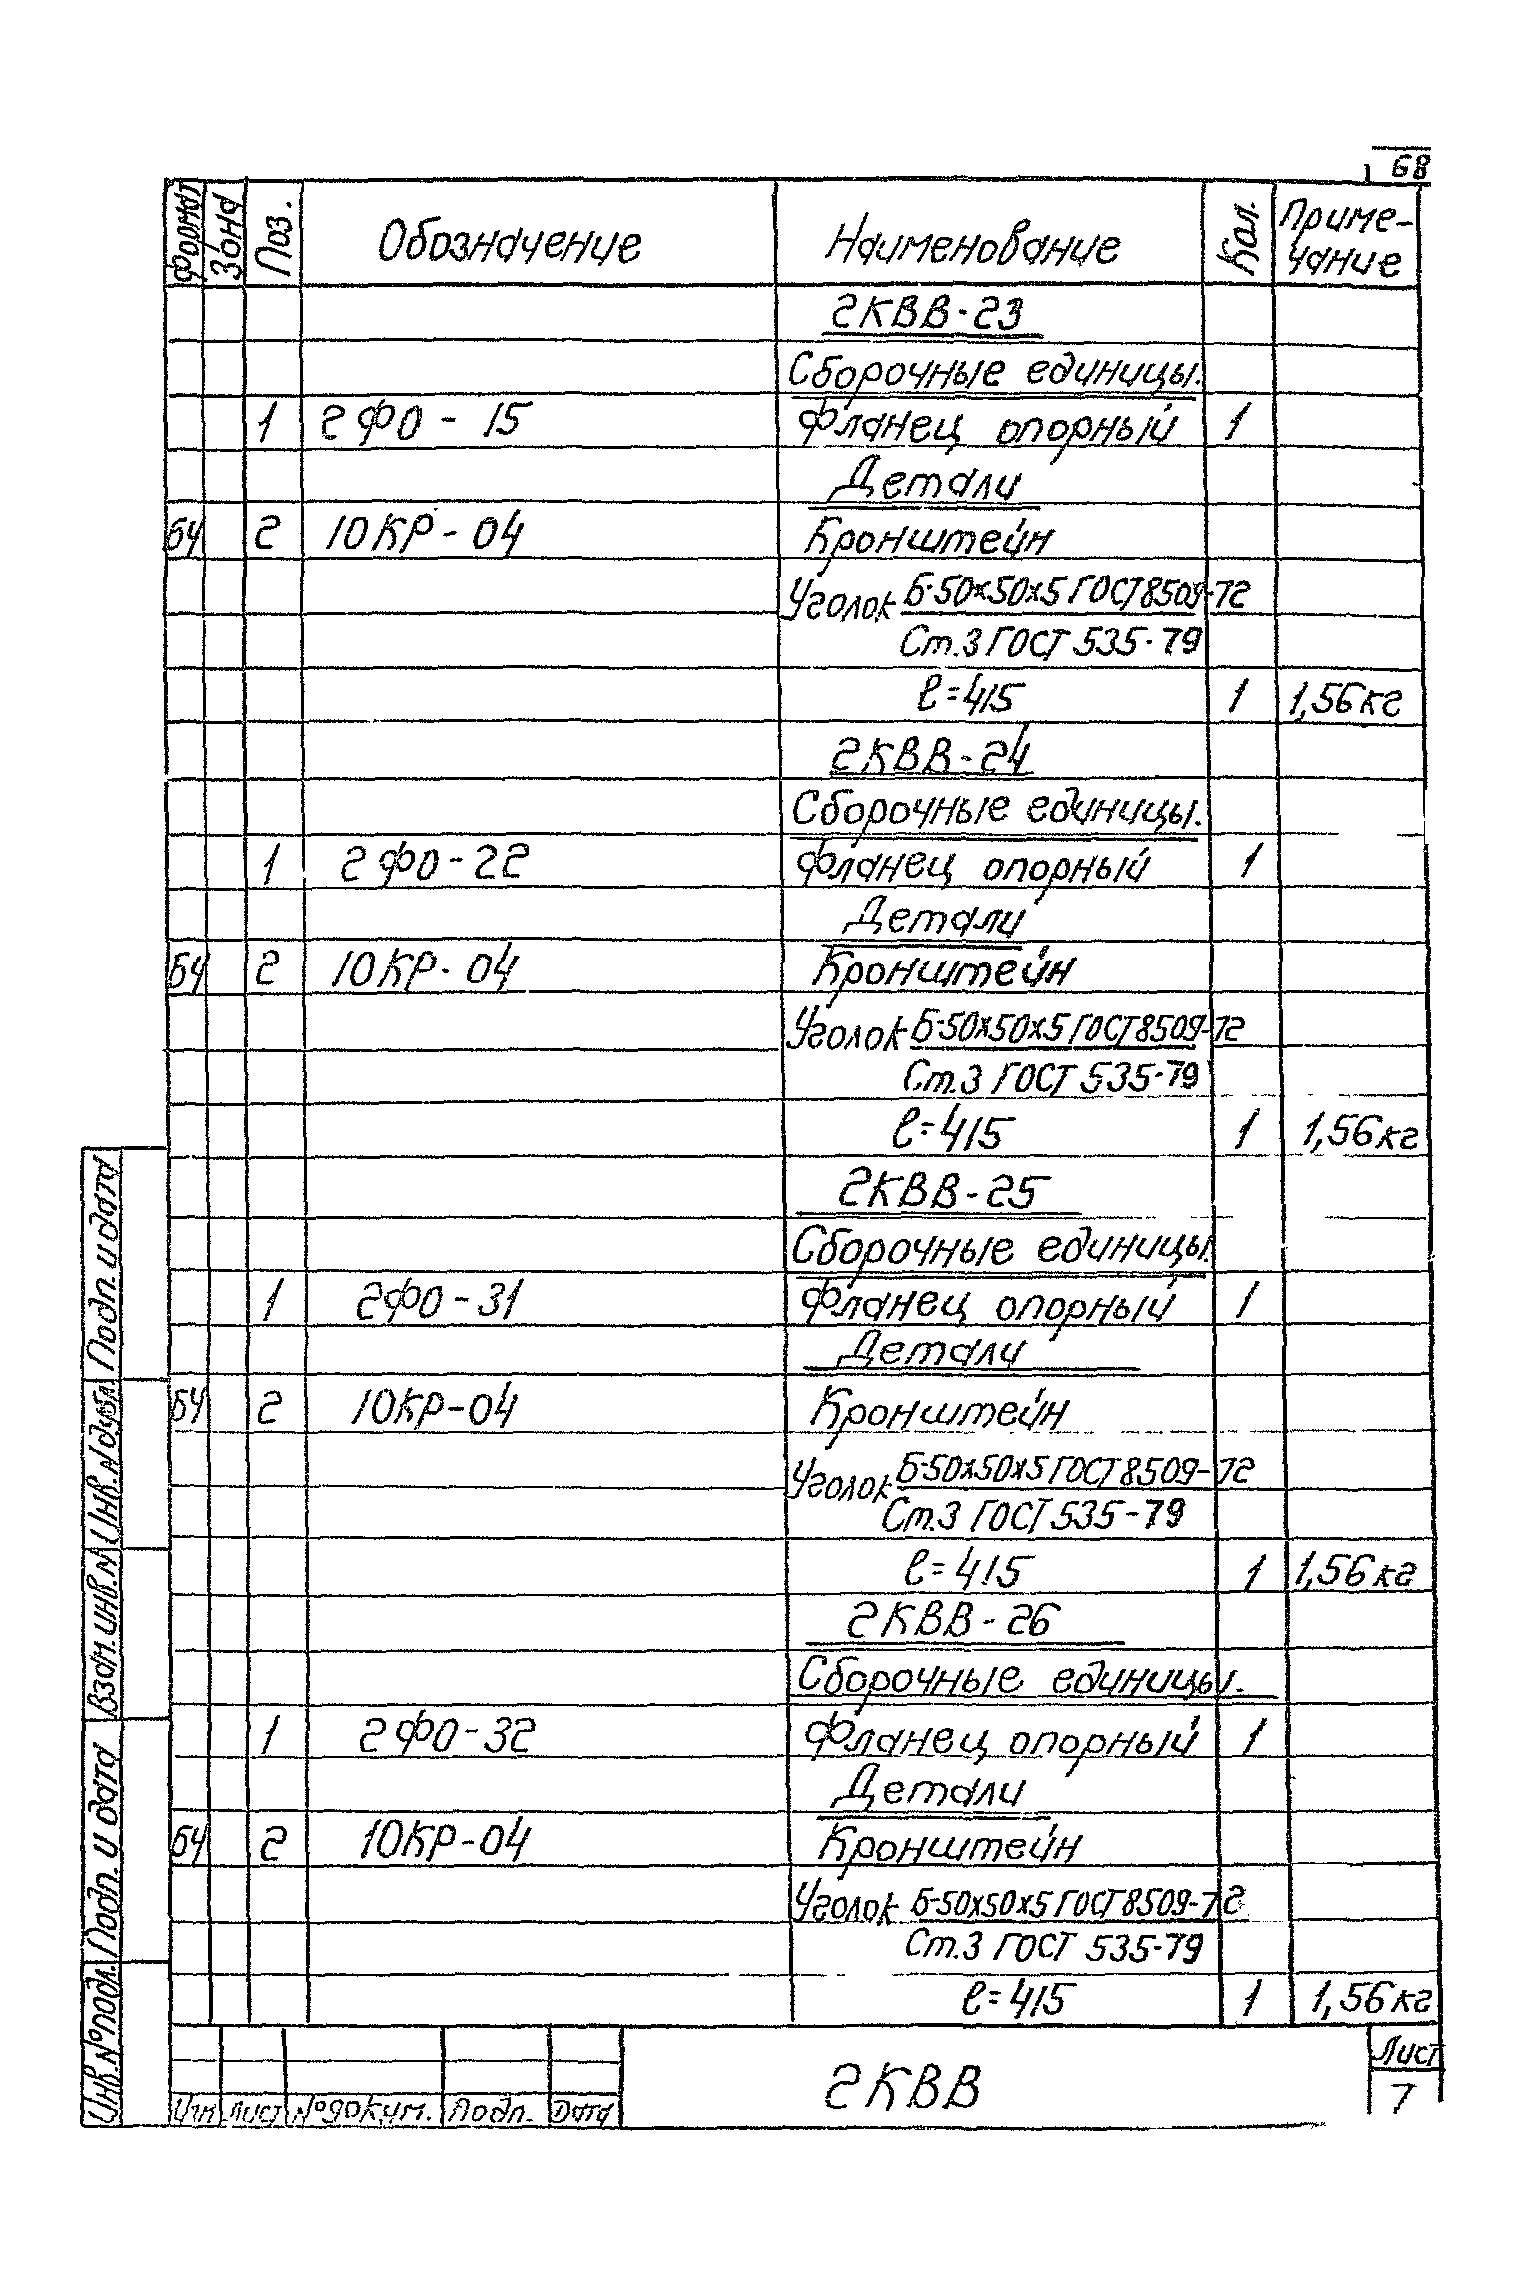 68
Формат Зона Поз. Обозначение Наименование Кол. Приме-
чание
2КВВ-23
Сборочные единицы.
1 2ФО-15 Фланец опорный 1
Детали
БЧ 2 10КР-04 Кронштейн
Уголок Б-50х50х5 ГОСТ 8509-72
Ст.3 ГОСТ 535-79
l=415 1 1,56кг
2КВВ-24
Сборочные единицы.
1 2ФО-22 Фланец опорный 1
Детали
БЧ 2 10КР-04 Кронштейн
Уголок Б-50х50х5 ГОСТ 8509-72
Ст.3 ГОСТ 535-79
l=415 1 1,56кг
2КВВ-25
Сборочные единицы.
1 2ФО-31 Фланец опорный 1
Детали
БЧ 2 10КР-04 Кронштейн
Уголок Б-50х50х5 ГОСТ 8509-72
Ст.3 ГОСТ 535-79
l=415 1 1,56кг
2КВВ-26
Сборочные единицы.
1 2ФО-32 Фланец опорный 1
Детали
БЧ 2 10КР-04 Кронштейн
Уголок Б-50х50х5 ГОСТ 8509-72
Ст.3 ГОСТ 535-79
l=415 1 1,56кг
Подп. и дата
Инв.N дубл.
Взам.инв.N
Подп. и дата
Инв.N°подл.
Изм Лист N°докум. Подп. Дата
2КВВ
Лист
7